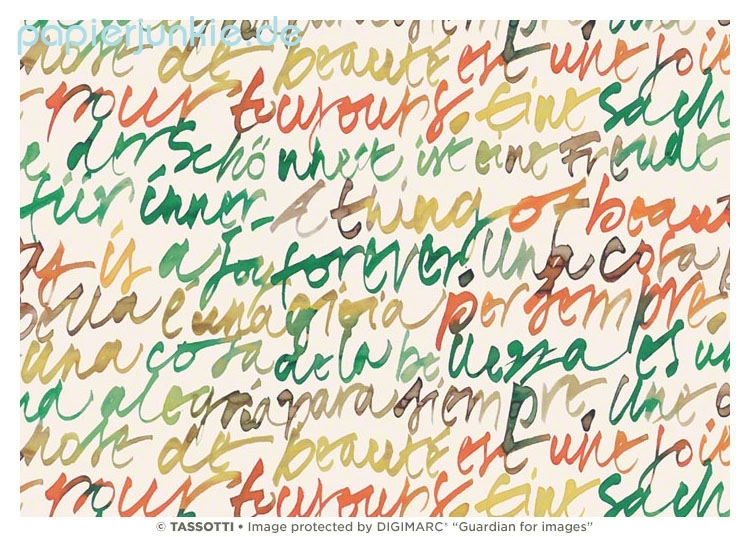 papierjunkie.de
hose de beauté est une joie
pour toujours. Eine Sach
e der Schönheit ist eine Freude
für immer. A thing of beaut
y is a joy forever. Una cosa
bella è una gioia per sempre.
una cosa de la belleza es un
na alegría para siempre. Une c
hose de beauté est une joie
pour toujours. Eine Sach
© TASSOTTI • Image protected by DIGIMARC® “Guardian for images”